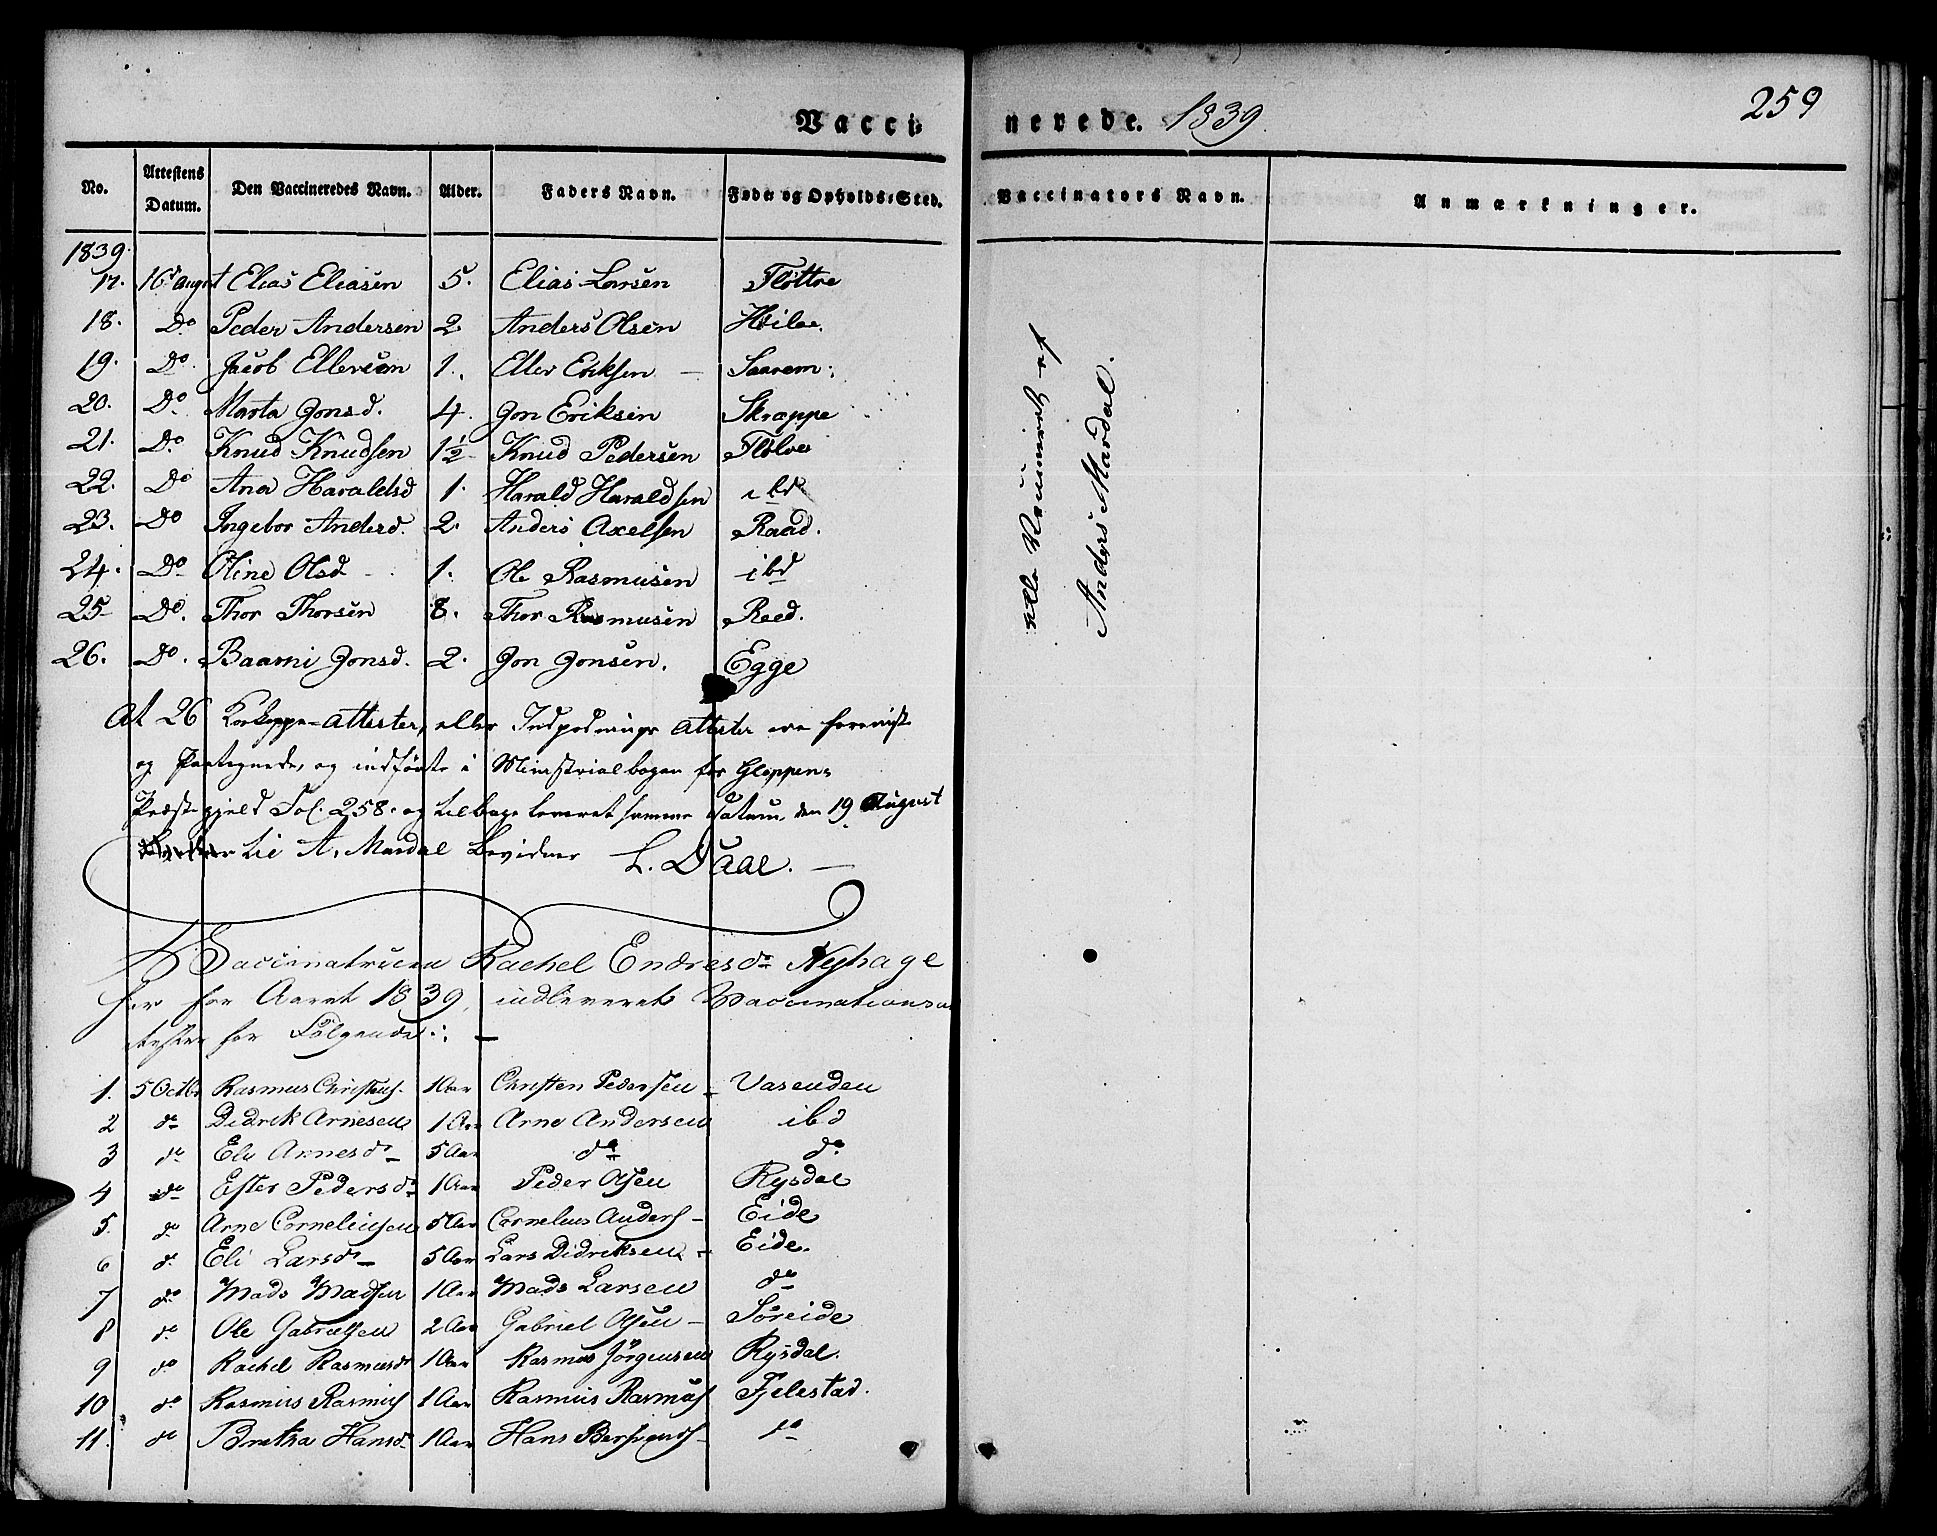 Vacci- nerede. 1839.
259
No. Attestens Datum. Den Vaccineredes Navn. Alder. Faders Navn. Føde og Opholds-Sted. Vaccinators Navn. Anmærkninger.
1839.
17. 16d august Elias Eliasen 5. Elias Larsen
18. Do Peder Andersen 2. Anders Olsen
19. Do. Jacob Ellersen 1. Eller Eriksen – Saarem.
20. Do Marta Jonsd. 4. Jon Eriksen Skrappe
21. Do. Knud Knudsen 1½ Knud Pedersen
22. Do Ana Haraldsd 1. Harald Haraldsen ibd.
23. Do Ingebor Andersd. 2. Anders Axelsen Raad.
24. Do Oline Olsd 1. Ole Rasmusen ibd
25 Do. Thor Thorsen 8. Thor Rasmusen Reed.
26. Do. Jonsd. 2. Jon Jonsen. Egge
alle af
Anders Mardal.
At 26 Kokoppe-Attester, eller Indpodnings Attester ere foreviist
og Paategnede, og indførte i Ministrialbogen for Gloppens
Præstegjeld Fol. 258. og tilbage leveret samme Datum, den 19 August
til A. Mardal bevidner L. Daae. –
Vaccinatricen Rachel Endresdr Nyhage
har for Aaret 1839, indleveret Vaccinationsat
tester for Følgende: –
1. 5 Octbr Rasmus Christens. 1 Aar Christen Pedersen – Vasenden
2 do Didrik Arnesen 1 Aar Arne Andersen ibd
3 do Eli Arnesdr 5 Aar do do
4 do Ester Pedersdr 1 Aar Peder Olsen Rysdal
5. do Arne Corneliusen 5 Aar Cornelius Anders – Eide
6 do Eli Larsdr 5 Aar Lars Didriksen – Eide.
7 do Mads Madsen 1 Aar Mads Larsen do
8 do Ole Gabrielsen 2 Aar Gabriel Olsen – Søreide
9 do Rachel Rasmusdr 1 Aar Rasmus Jörgensen Rysdal.
10 do Rasmus Rasmus 1 Aar Rasmus Rasmus Fjelestad.
11. do Bretha Hansdr 1 Aar Hans do